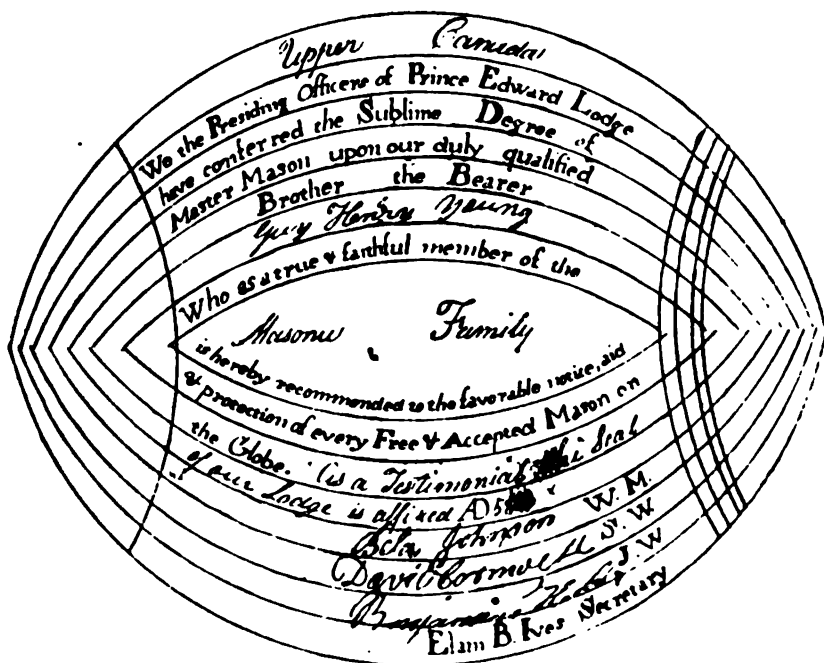 Upper Canada
We the Presiding Officers of Prince Edward Lodge
have conferred the Sublime Degree of
Master Mason upon our duly qualified
Brother the Bearer
Guy Henry Young
Who as a true & faithful member of the
Masonic Family
is hereby recommended to the favorable notice, aid
& protection of every Free & Accepted Mason on
the Globe. As a Testimonial Seal
of our Lodge is affixed AD
Johnson W. M.
David Cornwell S. W.
Benjamin J. W
Elam B. Ives Secretary